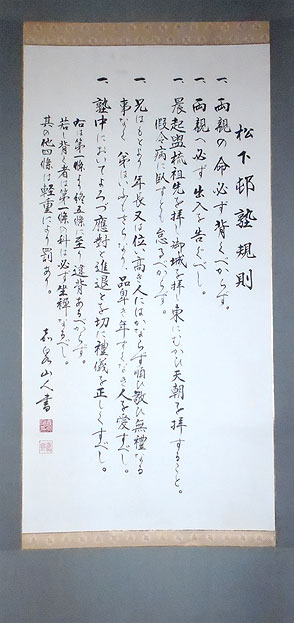 松下邨塾規則
一、両親の命必ず背くべからず。
一、両親へ必ず出入を告ぐべし。
一、晨起盥梳祖先を拝し御城を拝し東にむかひ天朝を拝すること。
仮令病に臥すとも怠るべからず。
一、兄はもとより年長又は位の高き人にはかならず順ひ敬ひ無禮なる
事なく、弟はいふもさらなり、品卑き年すくなき人を愛すべし。
一、塾中においてよろづ應對と進退とを切に禮儀を正しくすべし。
右は第一條より終五條に至り違背あるべからず。
若し背く者は第一條の科は必ず坐禅なるべし。
其の他四條は軽重により罰あり。
山人書